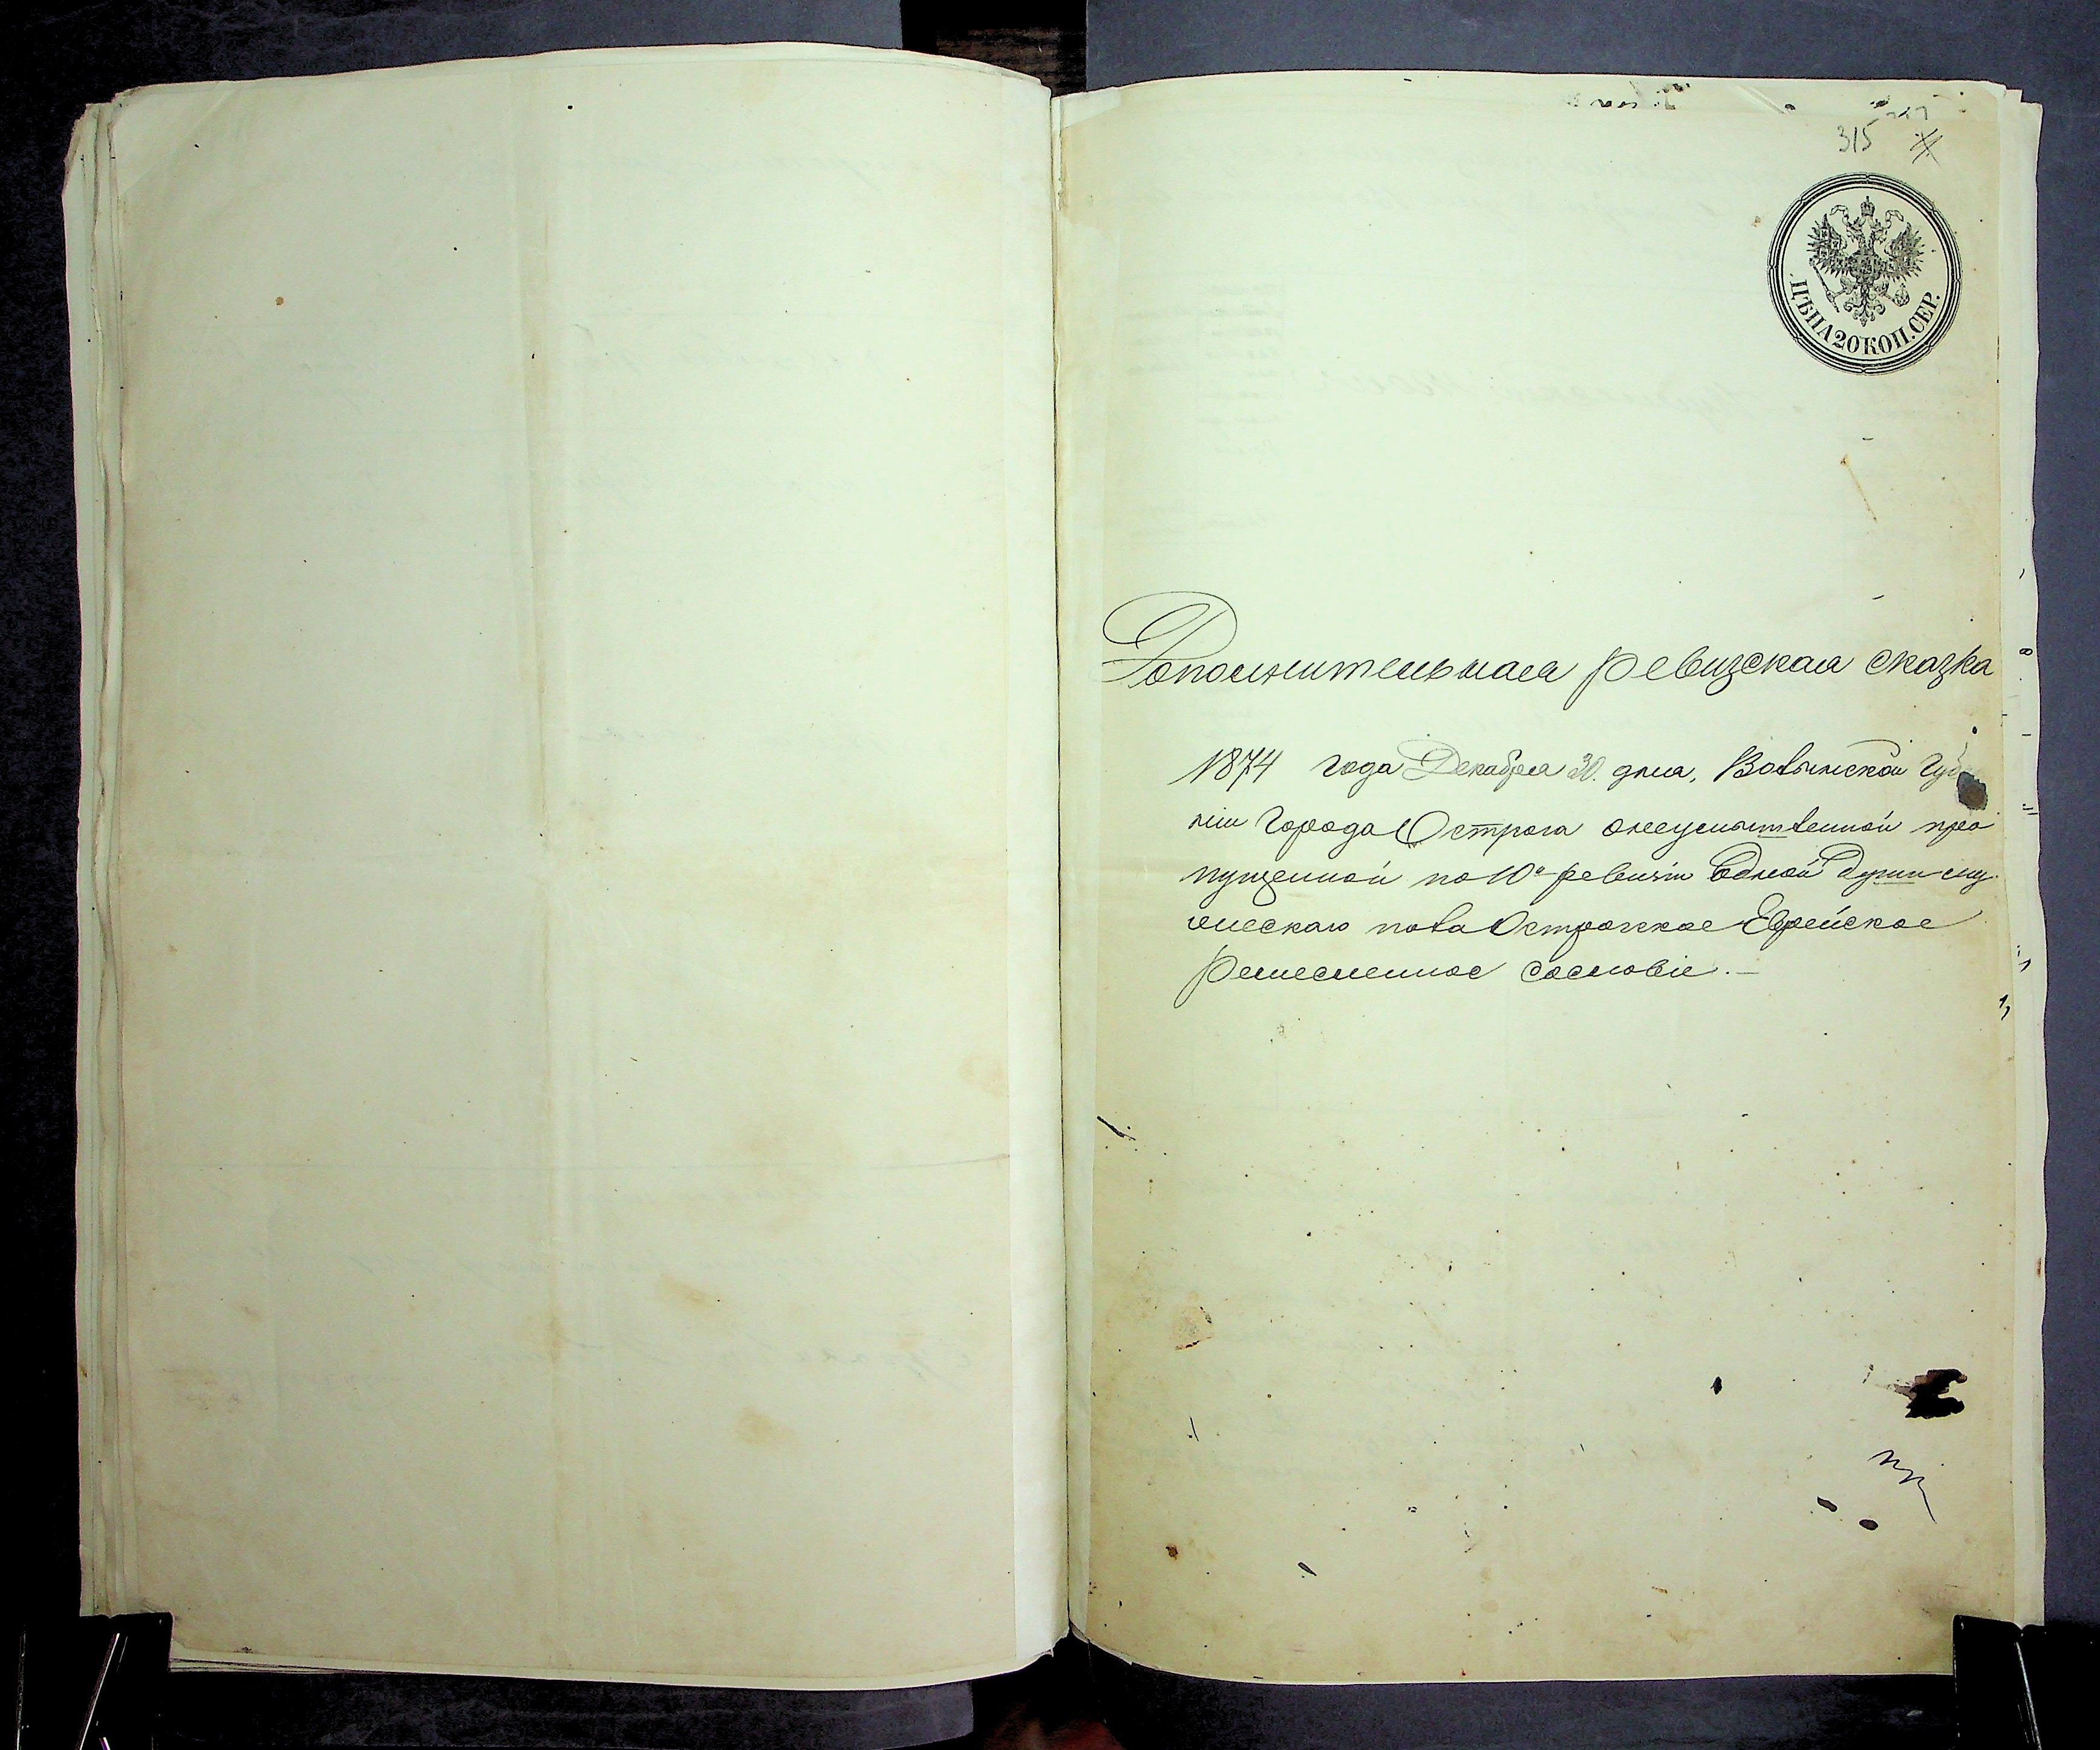 315
ЦѢНА 20 КОП. СЕР.
Дополнительная ревизская сказка
1874 года Декабря 30. дня, Волынской Губ
ніи Города Острога о неумышленной про
пущенной по 10й ревизіи Одной Души му
жескаго пола Острожское Еврейское
Ремесленное Сословіе.—